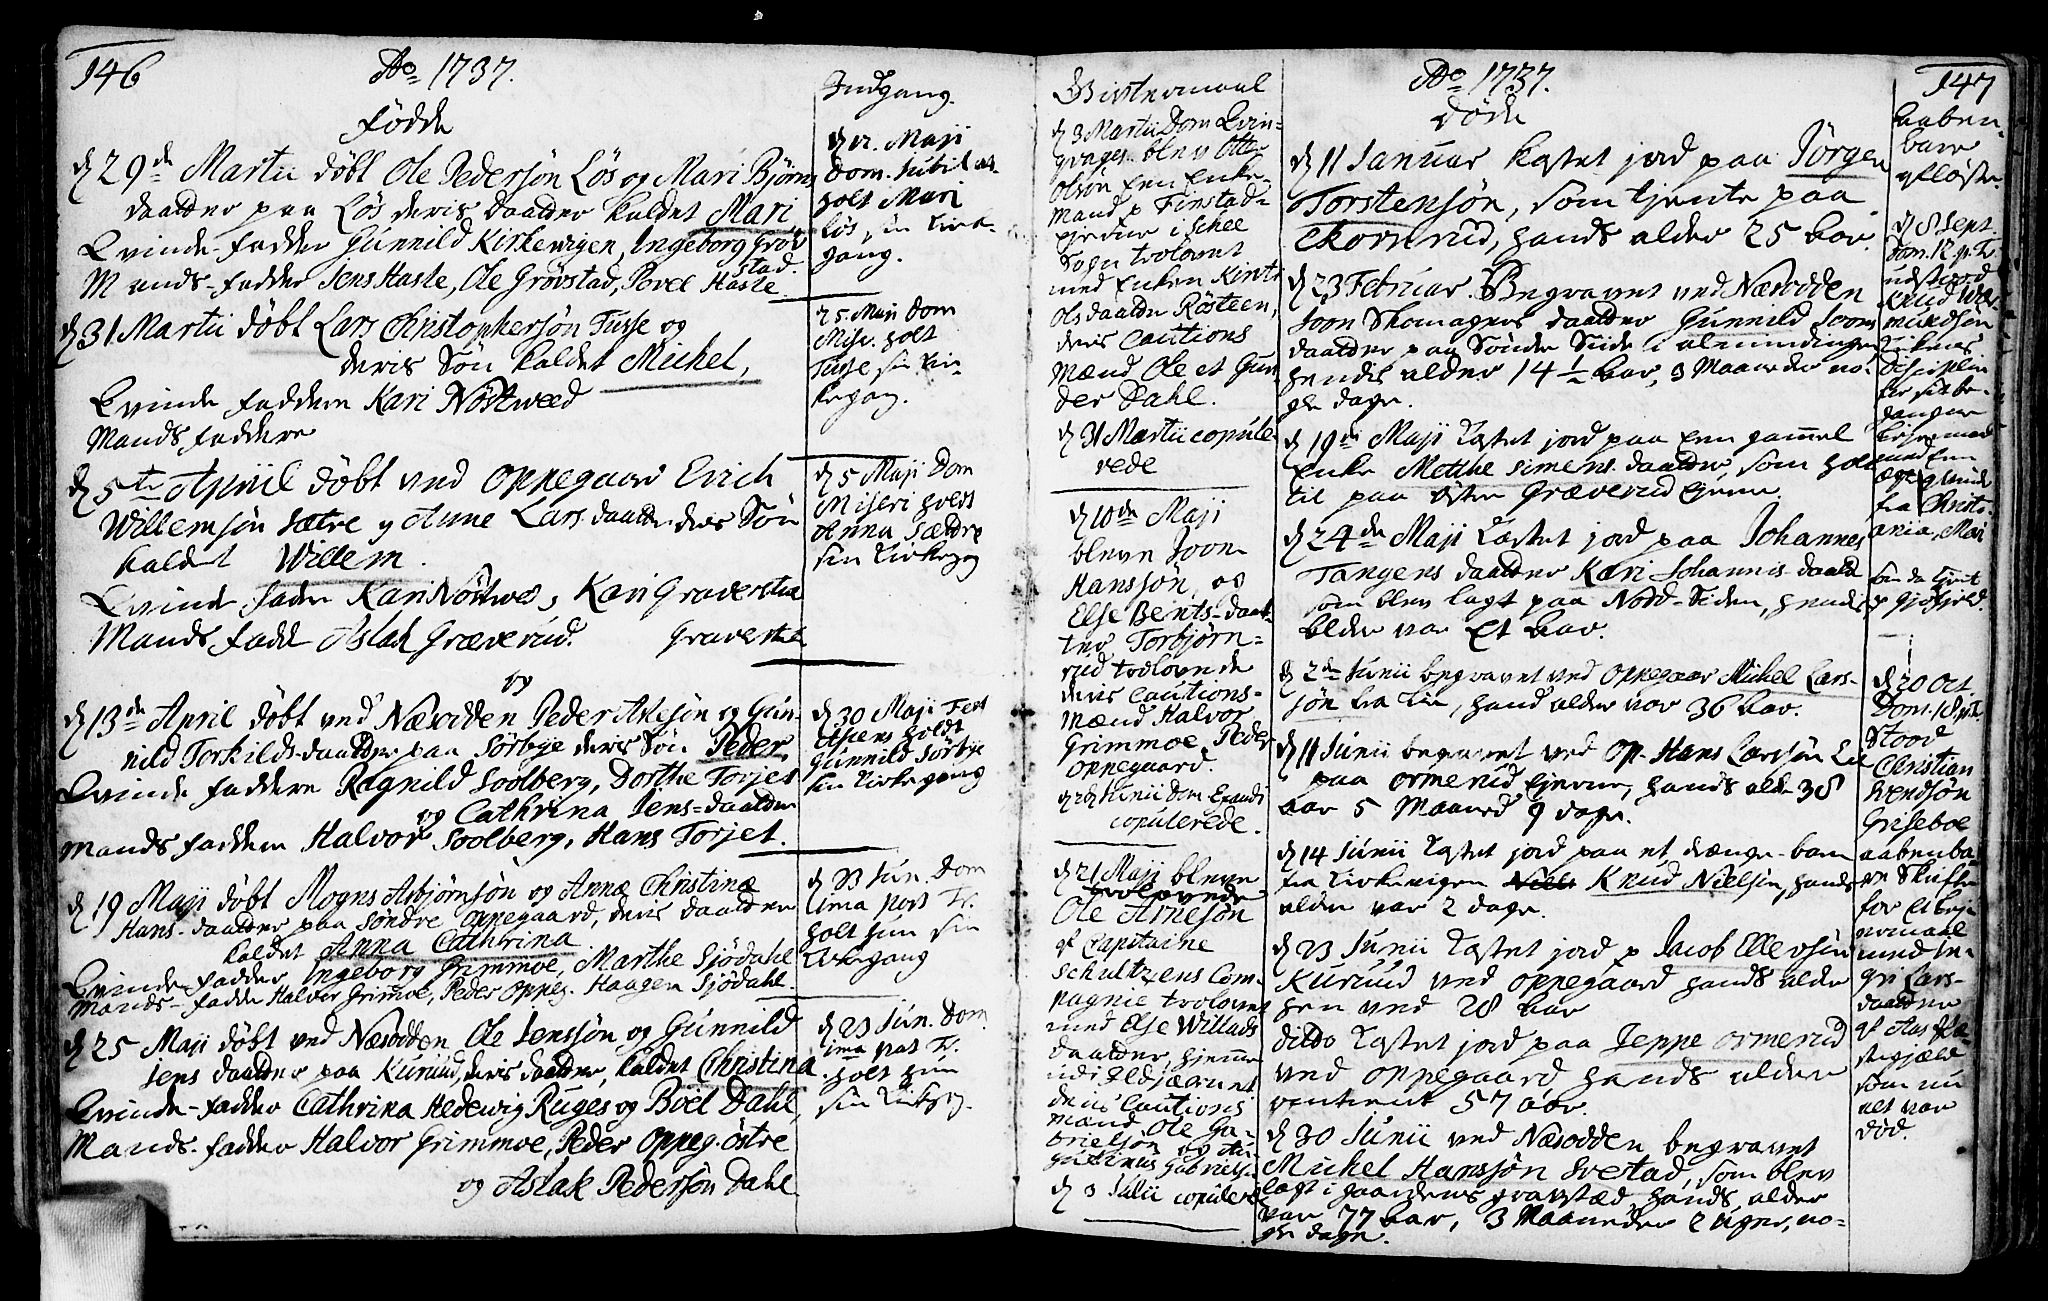 146
Ao 1737.
Fødde
d 29de Martii døbt Ole Pedersøn Løs og Mari Bjørns
daatter paa Løs deris daatter kaldet Mari
Qvinde-fadder Gunnild Kirkevigen, Ingeborg Grøv
stad.
Mands-fadder Jens Haste, Ole Grøvstad, Povel Haste.
d 31 Martii døbt Lars Christophersøn Tusse og
deris Søn kaldet Michel,
Qvinde faddere Kari Nøstweed
Mands faddere
d 5te April døbt ved Oppegaar Erich
Willemsøn Sætre og Anne Lars daatter deris Søn
kaldet Willem.
Qvinde fadder Kari Nøstwed, Kari Graverstua
Mands fadd Aslak Græverud. Graverstu
og
d 13de April døbt ved Næsodden Peder Akesøn og Gun-
nild Torkilds-daatter paa Sørbye deris Søn Peder
Qvinde faddere Ragnild Soolberg, Dorthe Torjet
og Cathrina Jens-daatter
Mands faddere Halvor Soolberg, Hans Torjet.
d 19 Maji døbt Mogns Asbjørnsøn og Anne Christine
Hans-daatter paa Søndre Oppegaard, deris daatter
kaldet Anna Cathrina
Qvinde-fadder Ingeborg Grimmoe, Marthe Sjødahl
Mands-fadder Halvor Grimmoe, Peder Oppeg. Haagen Sjødahl.
d 25 Maji døbt ved Næsodden Ole Jenssøn og Gunnild
Jens daatter paa Kurud, deris daatter, kaldet Christina
Qvinde-fadder Cathrina Hedewig Ruges og Boel Dahl,
Mands-fadder Halvor Grimmoe, Peder Oppeg. østre
og Aslak Pedersøn Dahl
Indgang.
d 12. Maji
Dom. Jubilat
holt Mari
Løs sin Kirke-
gang.
25 Maji Dom
Mise. holt
Tusse sin Kir-
kegag.
d 5 Maji Dom
Miseri holdt
Anna Sædtre
sin Kirkegag
d 30 Maji Fest
Ascens holdt
Gunnild Sørbye
sin Kirkegang
d 23 Jun. Dom
1ma post Tr.
holt hun sin
Kirkegang
d 23 Jun. Dom
1ma post Tr.
holt hun
sin Kirkeg.
Ægtermaal
d 3 Martii Dom Qvin-
qvages. blev Otter
Olsøn Een Enke-
mand p Finstad-
ejerne i Schee
Sogn trolovet
med Enken Kirsti
Ols daatter Røsteen,
deris Cautions
Mænd Ole et Gun
der Dahl.
d 31 Martii copule
rede
d 10de Maji
bleve Joon
Hanssøn, og
Else Bents-daat-
ter Torbjørn-
rud trolovede
deris Cautions-
Mænd Halvor
Grimmoe Peder
Oppegaard.
d 2 Junii Dom Exaudi
copulerede.
d 21 Maji bleve
trolovede
Ole Arnesøn
af Capitaine
Schultzens Com-
pagnie trolovet
med Else Willads
daatter, hjemme
udi
deris Cautions
mænd Ole Ga-
brielsøn og Au-
gustinus Gabriels.
d 3 Julii copulere
Ao 1737.
døde
d 11 Januar kastet jord paa Jørgen
Torstensøn, som tjente paa
Skornrud, hands alder 25 Aar.
d 23 Februar. Begravet ved Næsodden
Joon Skomagers daatter Gunnild Joons
daatter paa Sønder Side i alminding
hendes alder 14 1/2 Aar, 3 Maaneder no-
gle dage.
d 19de Maji kastet jord paa Een gammel
Enke Metthe Simens. daatter, som holt
til paa østre Græverud Ejerne.
d 24de Maji kastet jord paa Johannes
Tangens daatter Kari Johannis daatt
som blev lagt paa Nord-Siden, hendes
alder var Et Aar.
d 2de Junii begravet ved Oppegaar Michel Lars-
søn fra Lie, hands alder var 36 Aar.
d 11 Junii begravet ved Op. Hans Larssøn Lie
paa Ormerud Ejerne, hands alder 38
Aar 5 Maaned 9 dage.
d 14 Junii kastet jord paa et drænge-barn
fra Kirkevigen Niels Knud Nielsen, hands
alder var 2 dage.
d 23 Junii kastet jord p Jacob Ellevsøn
Kurud ved Oppegaard hands alder
hen ved 28 Aar
dito kastet jord paa Jeppe Ormerud
ved Oppegaard hands alder
omtrent 57 Aar.
d 30 Junii ved Næsodden begravet
Michel Hanssøn Svestad, som blev
lagt i gaardens gravstæd, hands alder
var 77 Aar, 3 Maaneder 2 Uger, no-
gle dage.
147
Aaben-
bare
afløste.
d 8 Sept.
Dom. 12 p. Tr.
udstood
Knud Wæ-
mundsøn
Kirkens
Disciplin
for sit be-
gangne
Leiermaal
med een
ægte qvinde
fra Christi-
ania, Mari
d 20 Oct.
Dom. 18 p. T.
Stood
Christian
Svendsøn
Griseboe
aabenba-
re Skrifte
for et Leje-
ermaal
med In-
gri Lars-
daatter
af Aas Præ-
stegjæld
som nu
alt var
død.